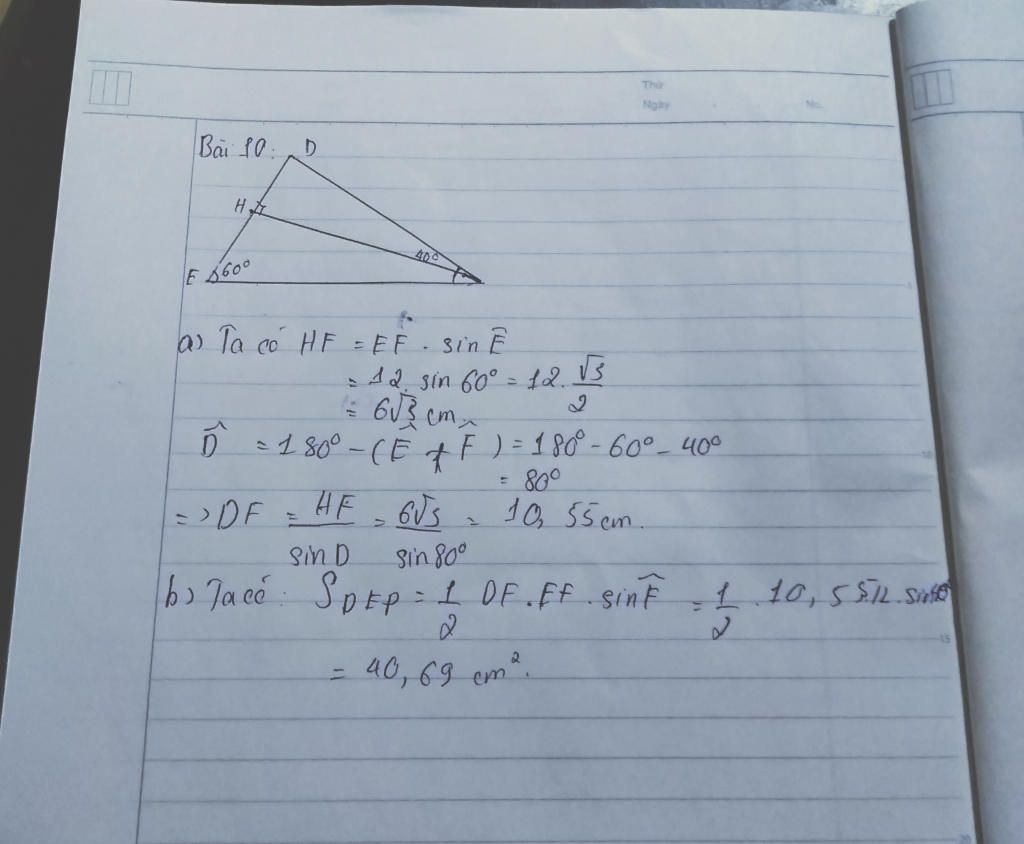 Thứ
Ngày No.
Bài 10: D
H
40°
E 60°
a) Ta có HF = EF . sin Ê
= 12. sin 60° = 12. √3/2
= 6√3 cm.
D̂ = 180° - (Ê + F̂) = 180° - 60° - 40°
= 80°
=> DF = HF/sin D = 6√3/sin 80° = 10,55 cm.
b) Ta có: S DEF = 1/2 DF . EF . sin F̂ = 1/2 . 10,55.12. sin 40°
= 40,69 cm².